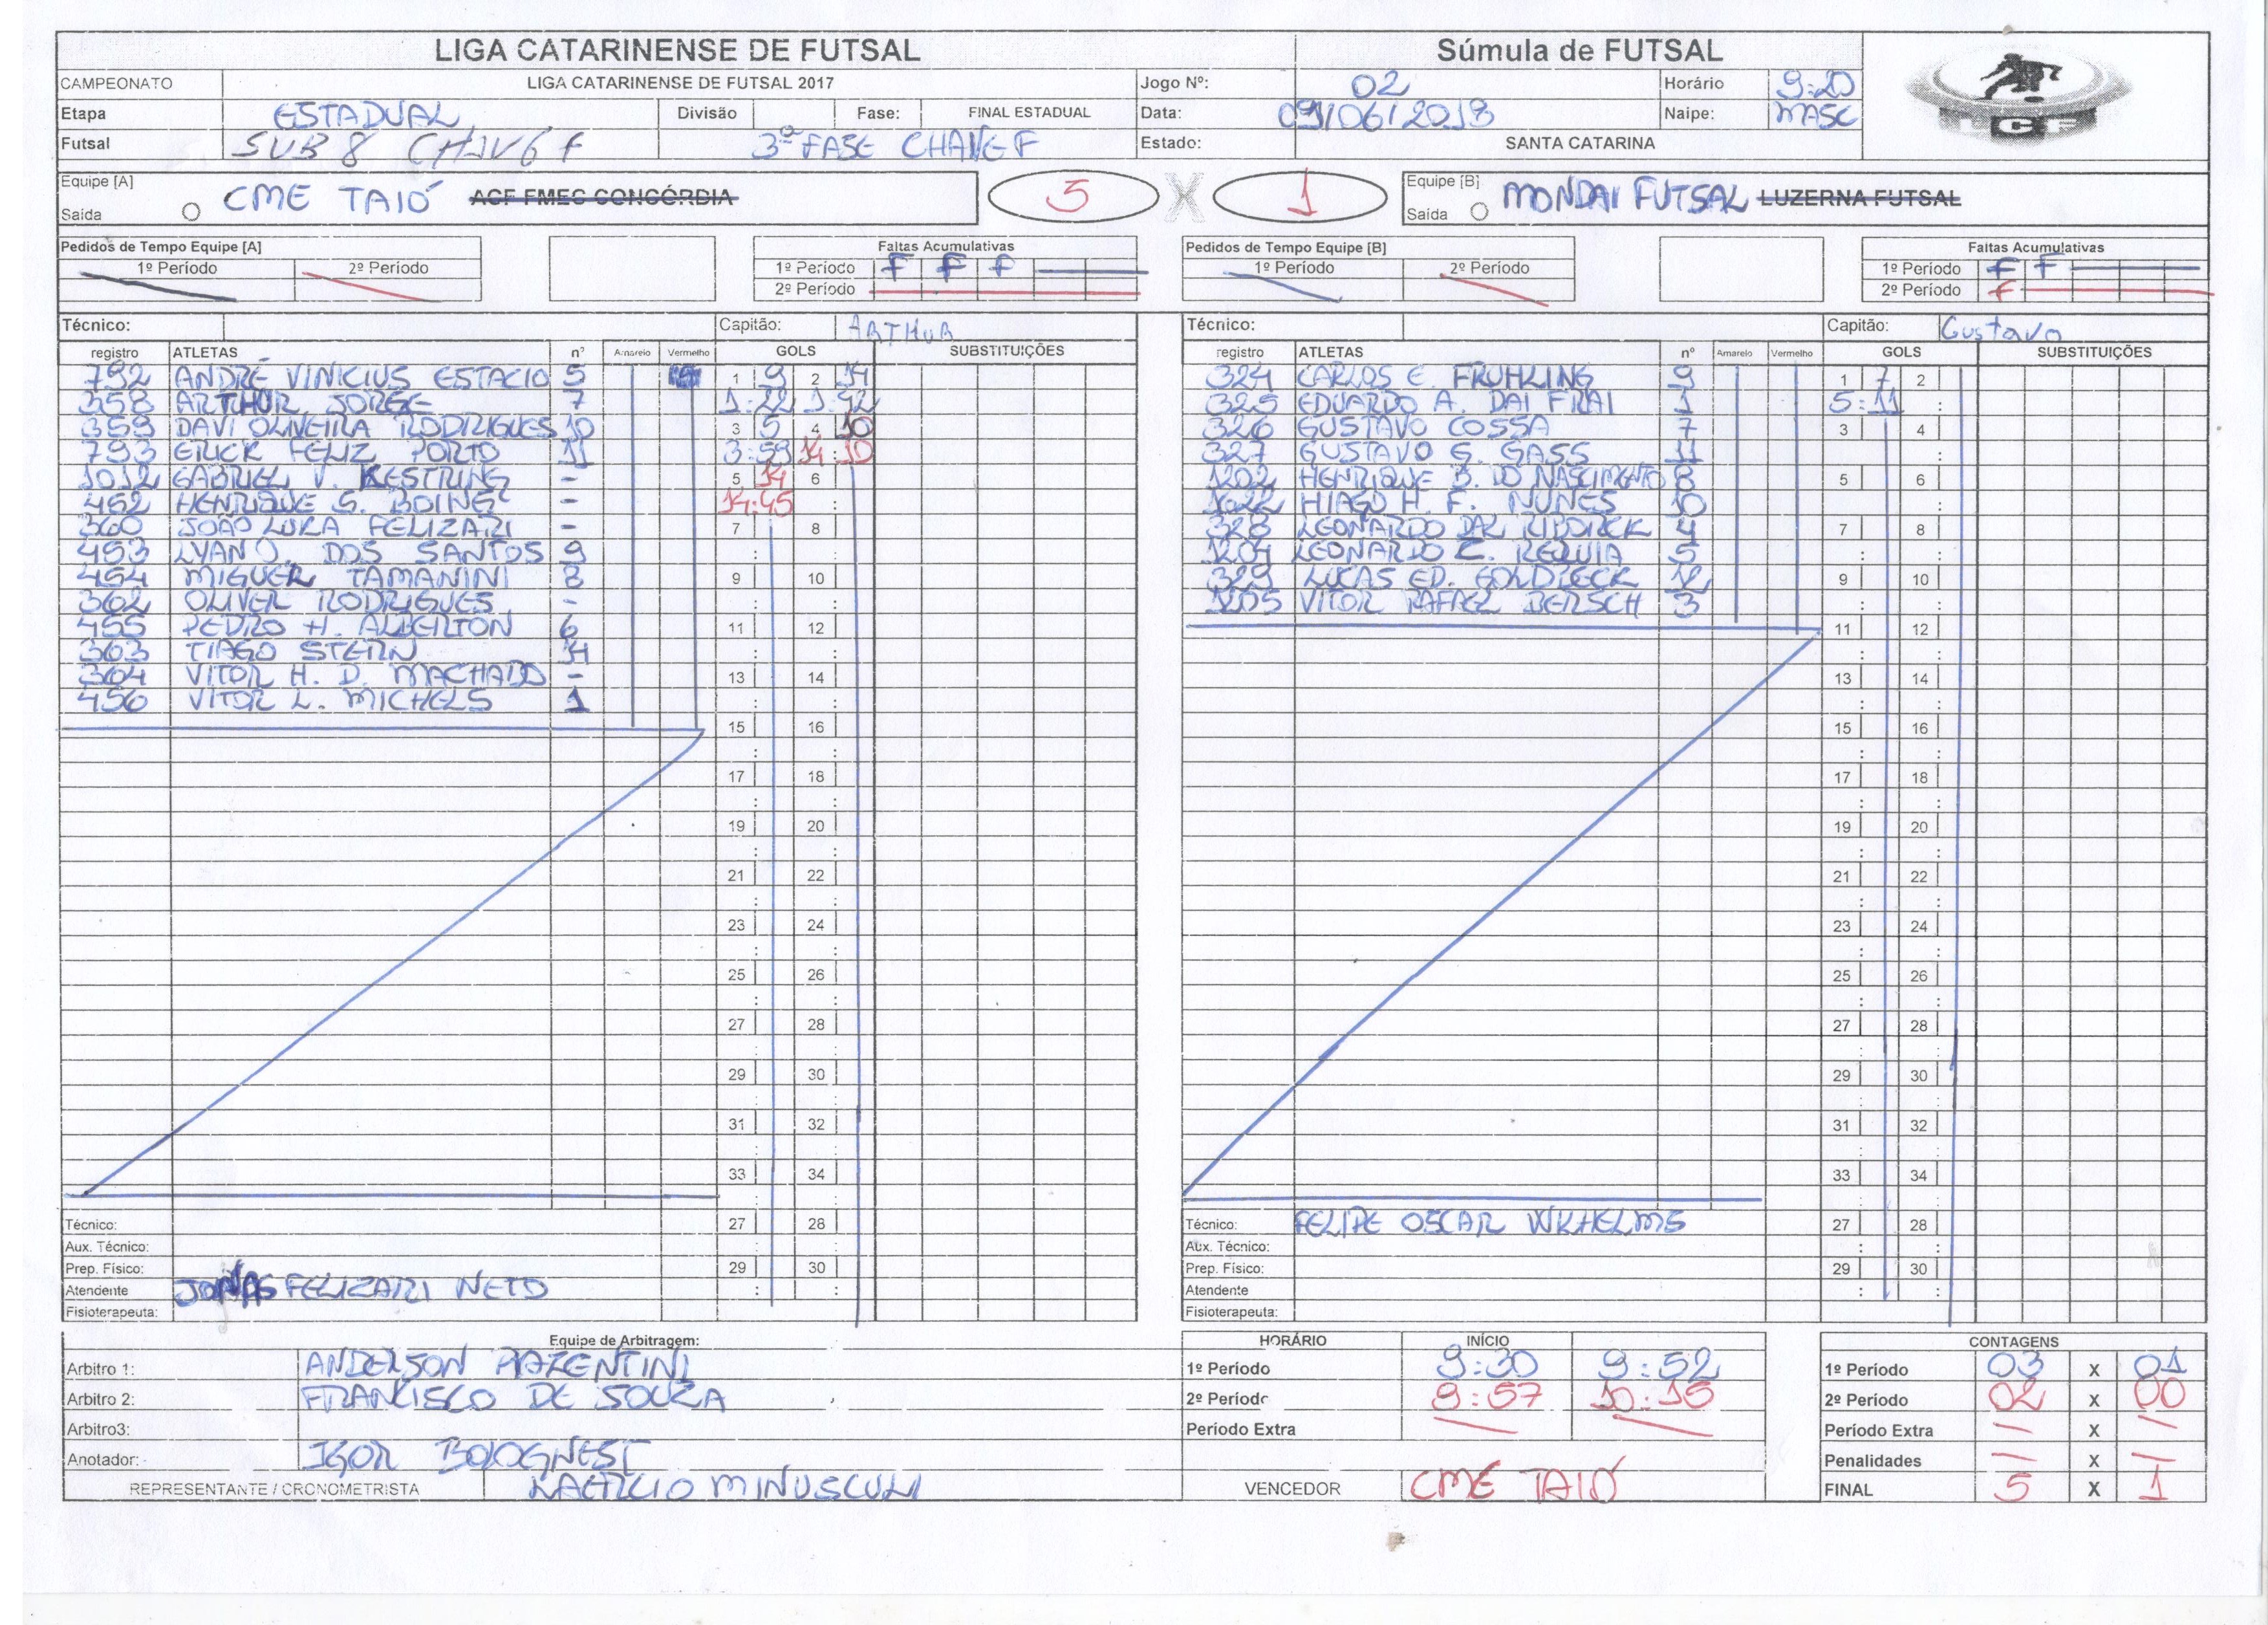 LIGA CATARINENSE DE FUTSAL Súmula de FUTSAL
CAMPEONATO LIGA CATARINENSE DE FUTSAL 2017 Jogo Nº: 02 Horário 9:20
Etapa ESTADUAL Divisão Fase: FINAL ESTADUAL Data: 09/06/2018 Naipe: MASC
Futsal SUB 8 CHAVE F 3ª FASE CHAVE F Estado: SANTA CATARINA
LCF
Equipe [A] CME TAIÓ ACF FMEC CONCÓRDIA 5 X 1 Equipe [B] MONDAI FUTSAL LUZERNA FUTSAL
Saída Saída
Pedidos de Tempo Equipe [A] Faltas Acumulativas Pedidos de Tempo Equipe [B] Faltas Acumulativas
1º Período 2º Período 1º Período F F F 1º Período 2º Período 1º Período F F
2º Período 2º Período F
Técnico: Capitão: ARTHUR Técnico: Capitão: Gustavo
registro ATLETAS nº Amarelo Vermelho GOLS SUBSTITUIÇÕES registro ATLETAS nº Amarelo Vermelho GOLS SUBSTITUIÇÕES
792 ANDRÉ VINICIUS ESTACIO 5 1 9 2 14 324 CARLOS E. FRUHLING 9 1 7 2
358 ARTHUR JORGE 7 1:22 1:42 325 EDUARDO A. DAI FRAI 1 5:11 :
359 DAVI OLIVEIRA RODRIGUES 10 3 5 4 10 326 GUSTAVO COSSA 7 3 4
793 ERICK FELIZ PORTO 11 3:59 14:10 327 GUSTAVO G. GASS 11
1012 GABRIEL V. KESTRING - 5 14 6 1202 HENRIQUE B. DO NASCIMENTO 8 5 6
452 HENRIQUE S. BOING - 14:45 : 1022 HIAGO H. F. NUNES 10 :
360 JOÃO LUKA FELIZARI - 7 8 328 LEONARDO DAL 4 7 8
453 LYAN O. DOS SANTOS 9 : : 1204 LEONARDO C. REQUIA 5 : :
454 MIGUER TAMANINI 8 9 10 329 LUCAS ED. GOLDBECK 12 9 10
362 OLIVER RODRIGUES - : : 1205 VITOR RAFAEL BERSCH 3 : :
455 PEDRO H. ALBERTON 6 11 12 11 12
363 TIAGO STERN 14 : : : :
364 VITOR H. D. MACHADO - 13 14 13 14
456 VITOR L. MICHELS 1 : : : :
15 16 15 16
: : : :
17 18 17 18
: : : :
19 20 19 20
: : : :
21 22 21 22
: : : :
23 24 23 24
: : : :
25 26 25 26
: : : :
27 28 27 28
: : : :
29 30 29 30
: : : :
31 32 31 32
: : : :
33 34 33 34
: : : :
Técnico: 27 28 Técnico: FELIPE OSCAR WILHELMS 27 28
Aux. Técnico: : : Aux. Técnico: : :
Prep. Físico: 29 30 Prep. Físico: 29 30
Atendente JONAS FELIZARI NETO : : Atendente : :
Fisioterapeuta: Fisioterapeuta:
Equipe de Arbitragem: HORÁRIO INÍCIO CONTAGENS
Arbitro 1: ANDERSON PIAZENTINI 1º Período 9:30 9:52 1º Período 03 X 01
Arbitro 2: FRANCISCO DE SOUZA 2º Período 9:57 10:15 2º Período 02 X 00
Arbitro3: Período Extra Período Extra — X —
Anotador: IGOR BOLOGNESI Penalidades — X —
REPRESENTANTE / CRONOMETRISTA LAERCIO MINUSCULI VENCEDOR CME TAIÓ FINAL 5 X 1